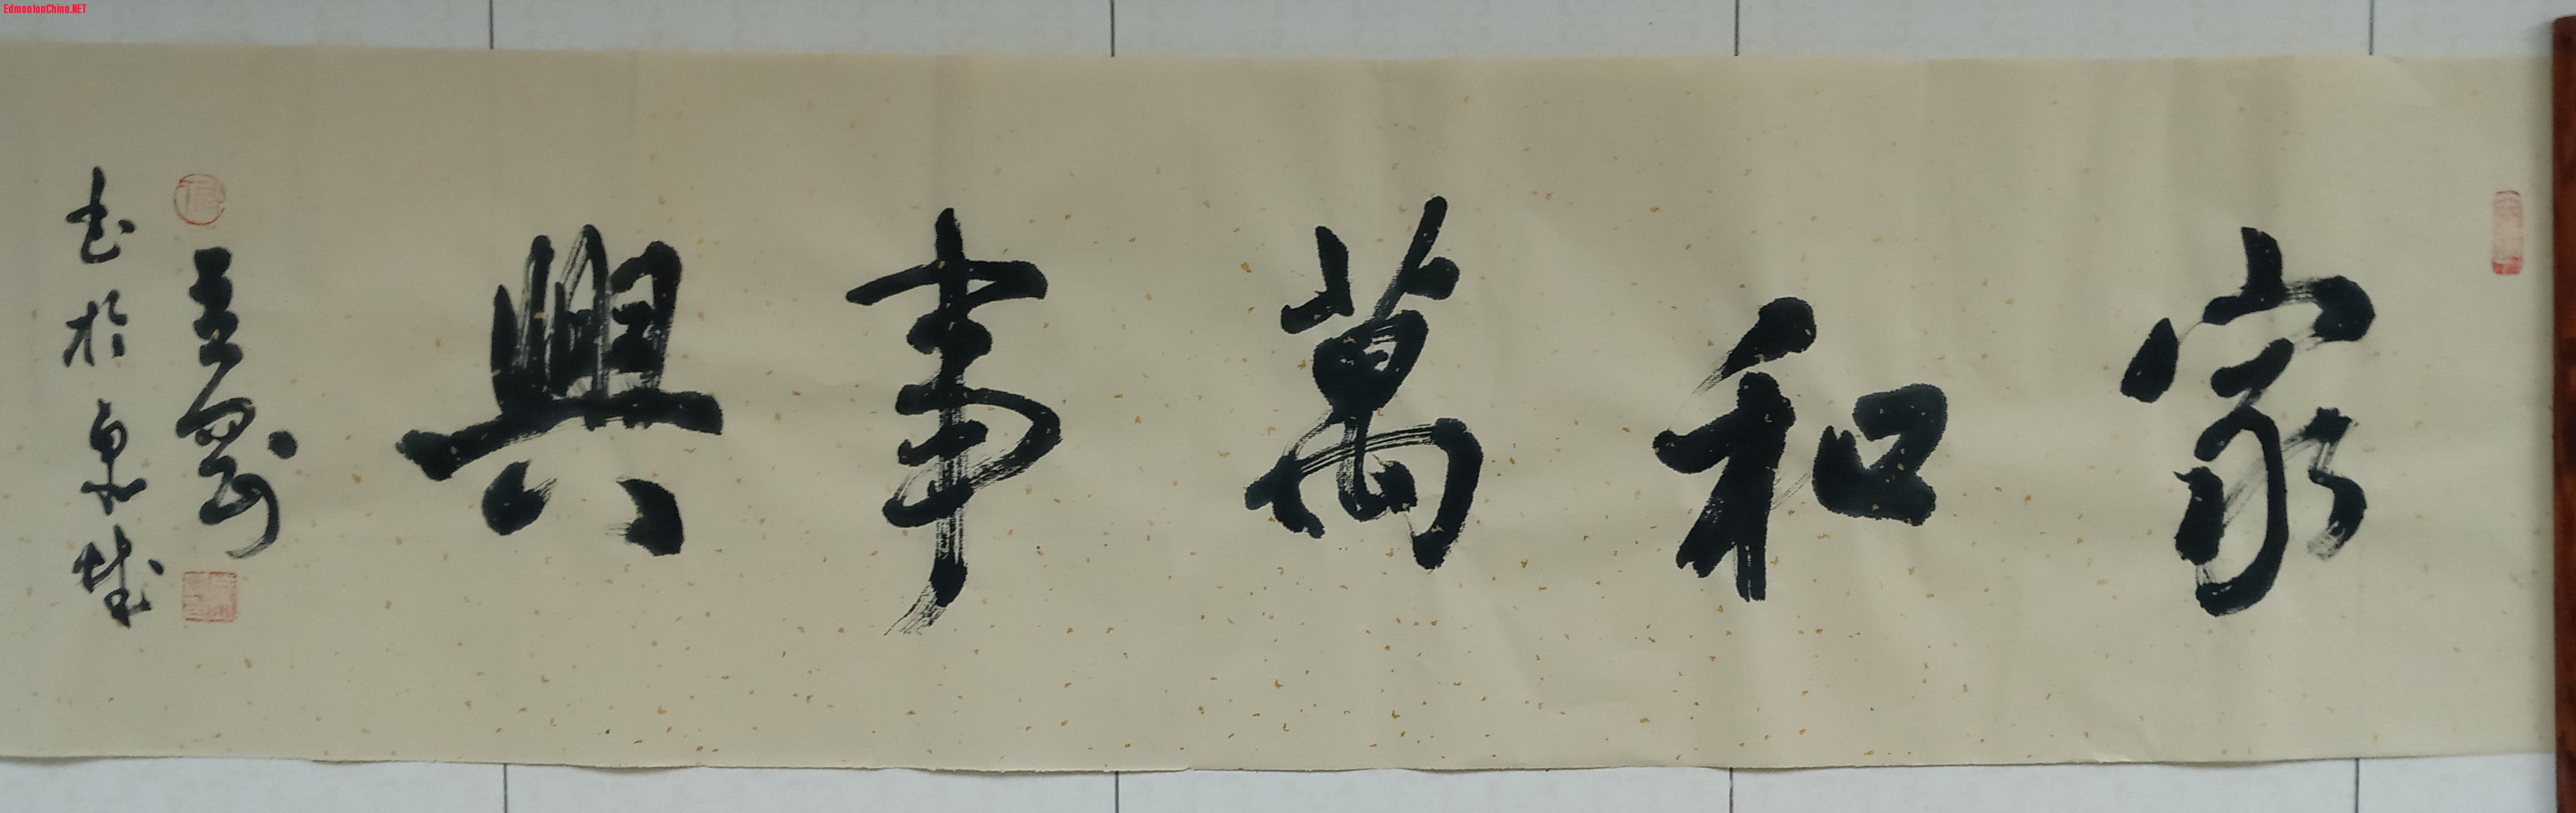 家和萬事興
书於泉城
EdmontonChina.NET